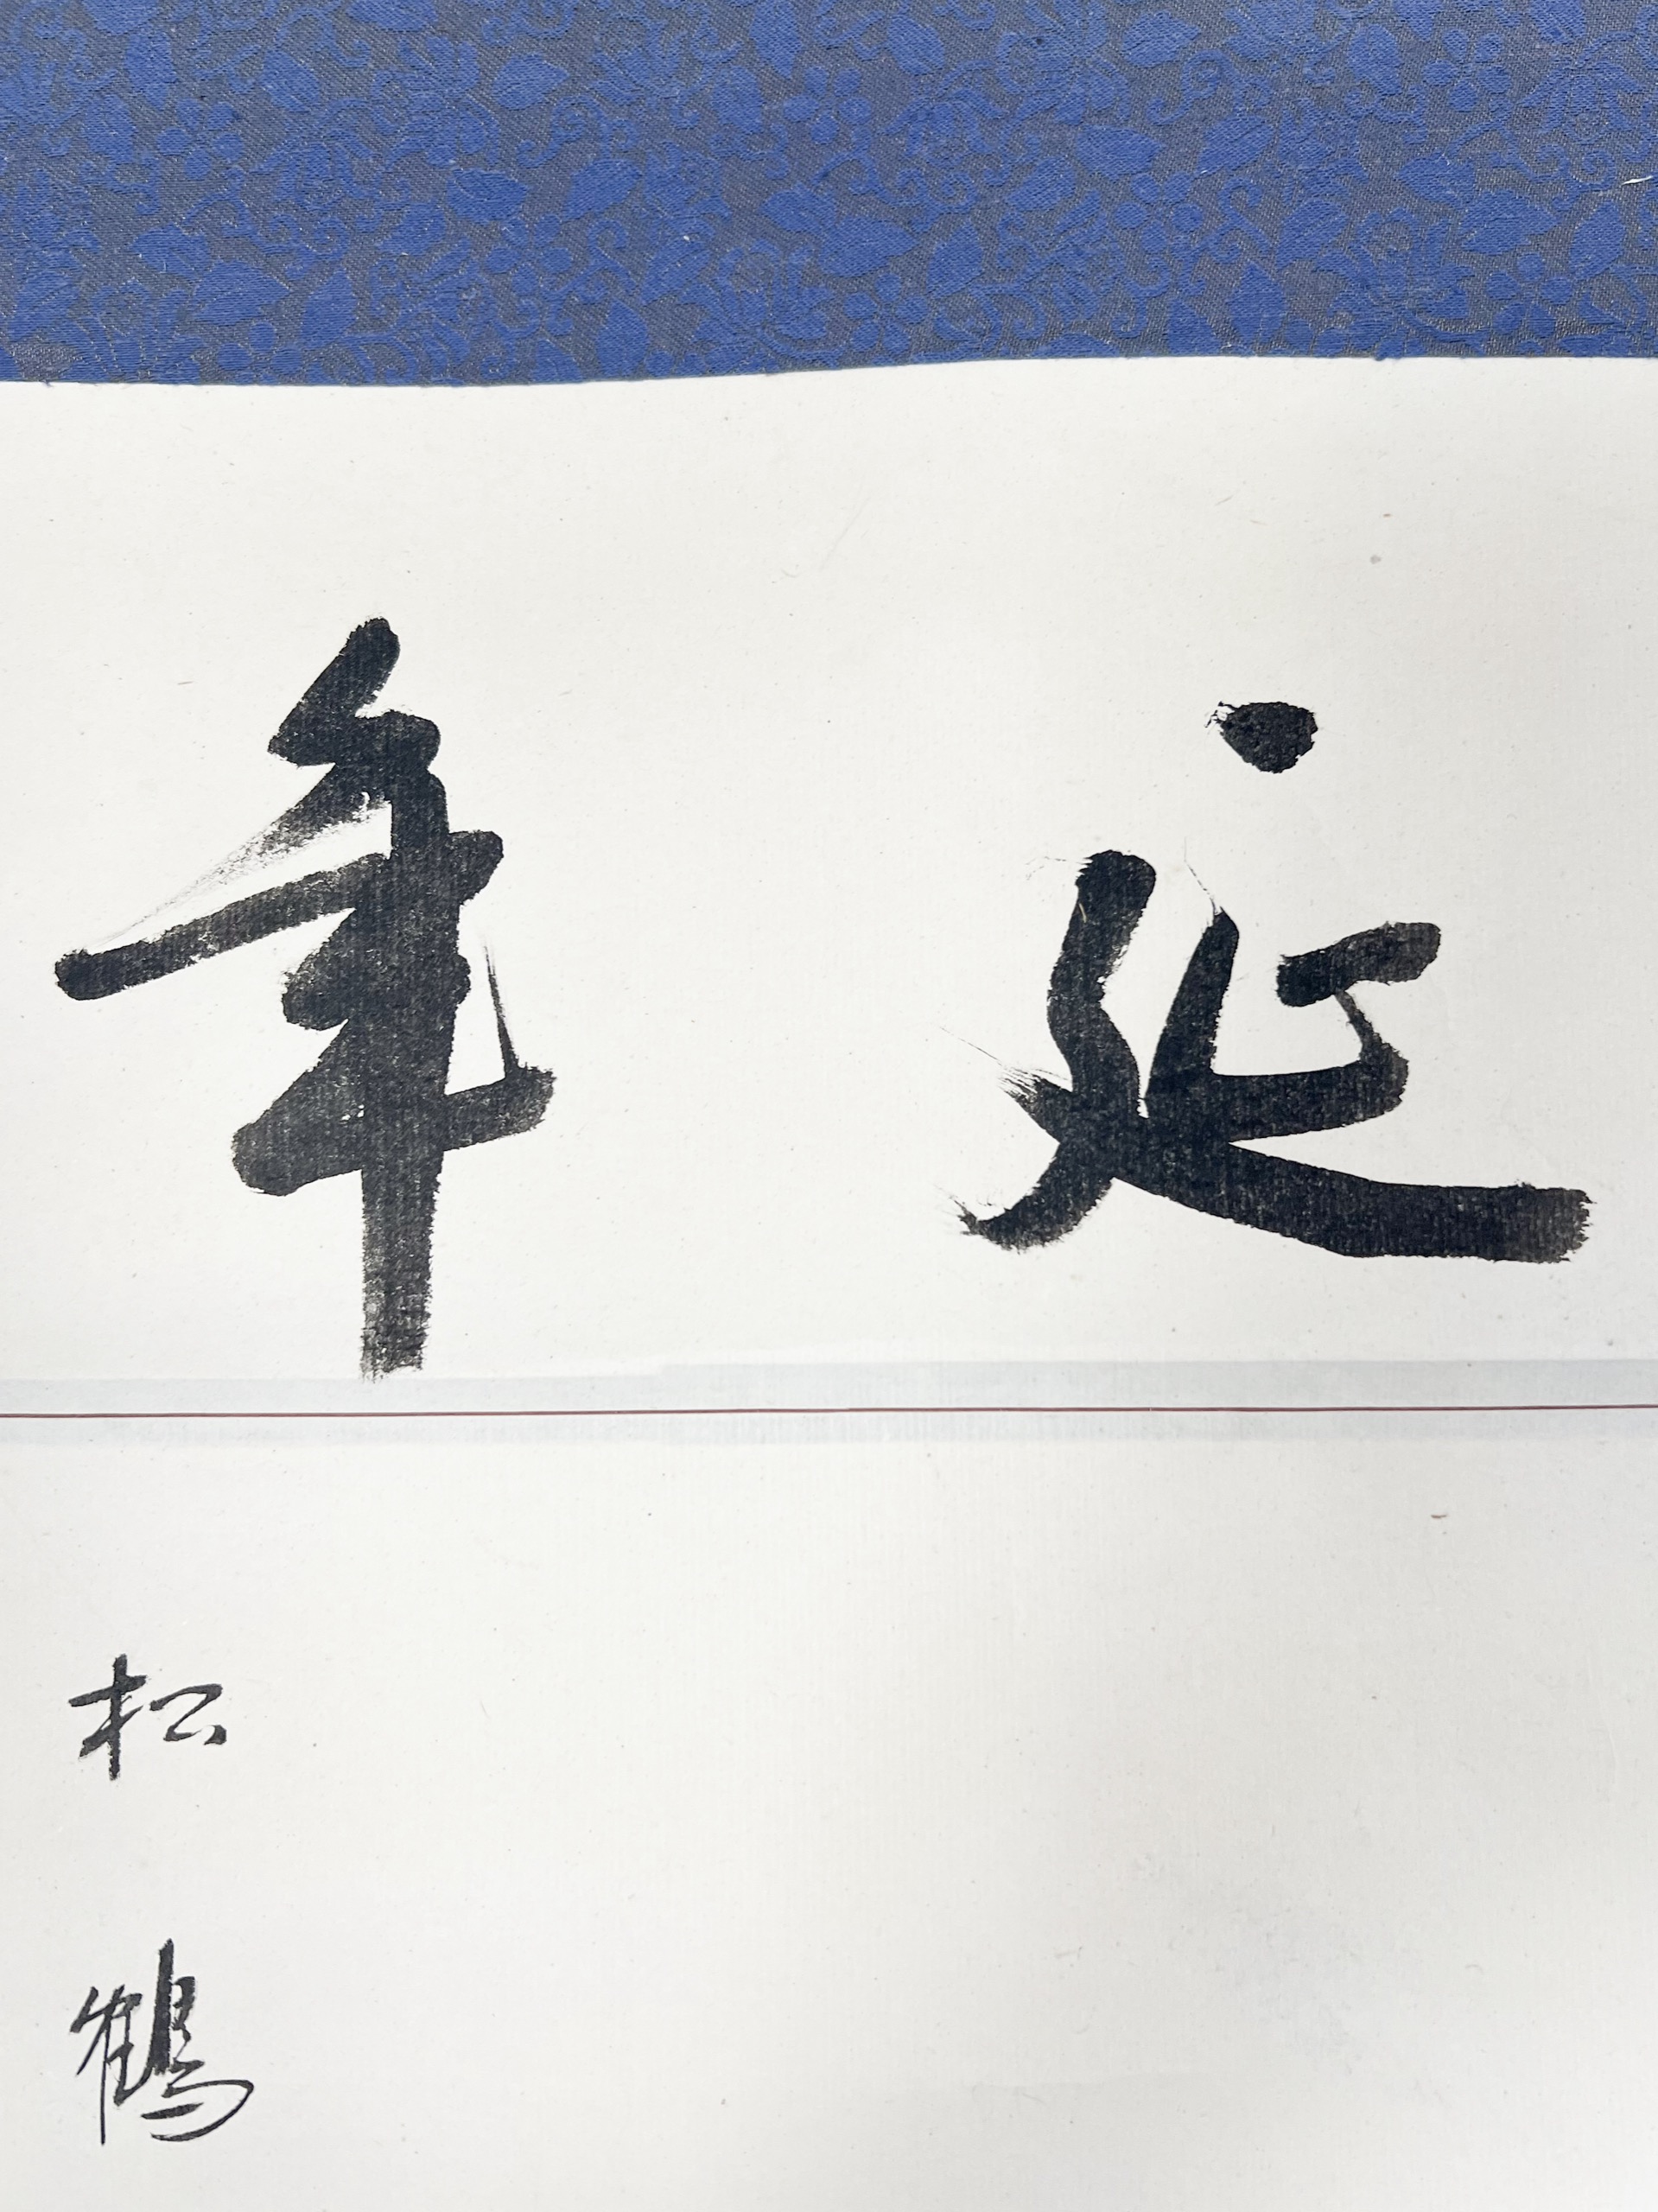 延年
松鶴